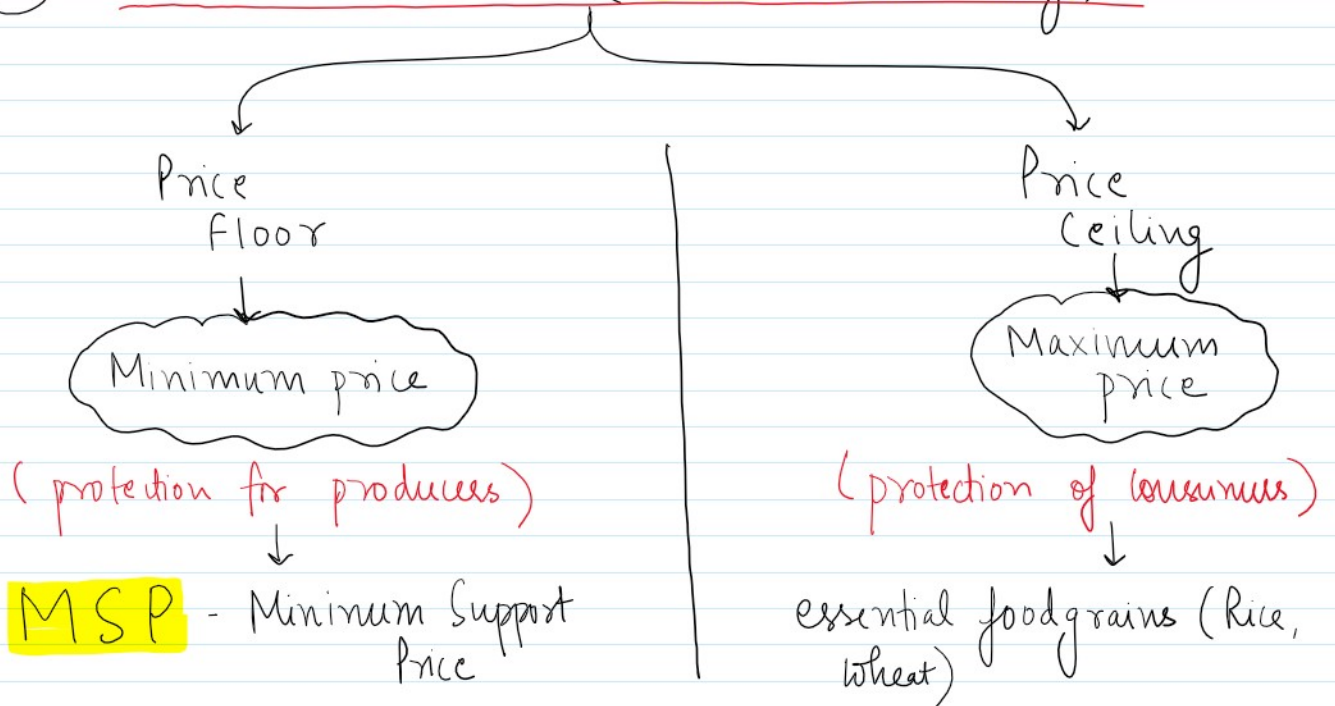 Price
Floor
Minimum price
(protection for producers)
MSP - Mininum Support
Price
Price
Ceiling
Maximum
price
(protection of consumers)
essential foodgrains (Rice,
Wheat)